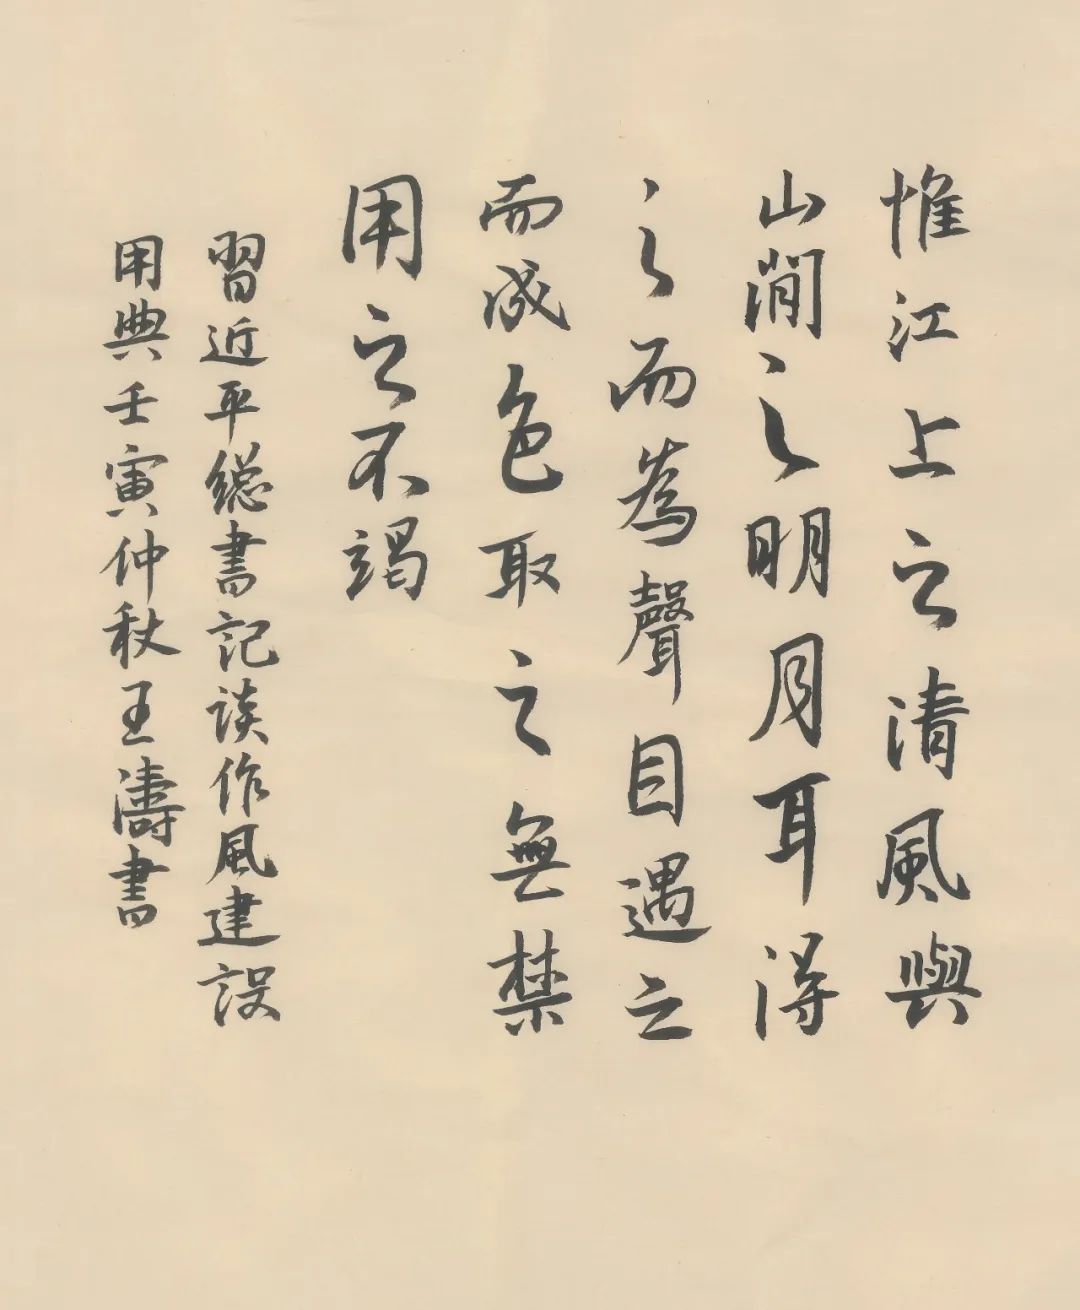 惟江上之清風與
山間之明月耳得
之而為聲目遇之
而成色取之無禁
用之不竭
習近平總書記談作風建設
用典壬寅仲秋王濤書